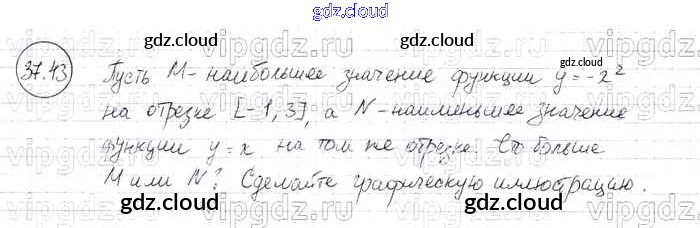 gdz.cloud
gdz.cloud
gdz.cloud
37.43
Пусть M - наибольшее значение функции y = -x²
на отрезке [-1,3], а N - наименьшее значение
функции y = x на том же отрезке. Что больше
M или N? Сделайте графическую иллюстрацию.
gdz.cloud
gdz.cloud